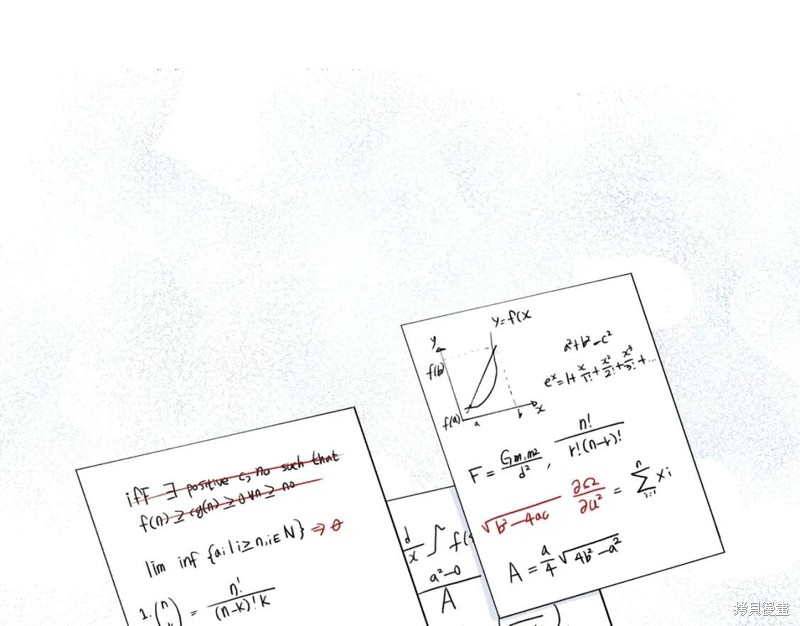 iff ∃ positive c, no such that
f(n) ≥ cg(n) ≥ 0 ∀n ≥ no
lim inf {ai | i ≥ n, i ∈ N} ⇒ θ
1. (n k) = n! / (n-k)! k
d/x ∫ f(
a²-0 / A
y=f(x
y
f(b)
f(a)
a b x
a²+b²-c²
eˣ=1+x/1!+x²/2!+x³/3!+...
F = Gm₁m₂/d², n!/r!(n-r)!
√b²-4ac ∂Ω/∂u² = Σ n i=1 xi
A = a/4 √4b²-a²
拷貝漫畫